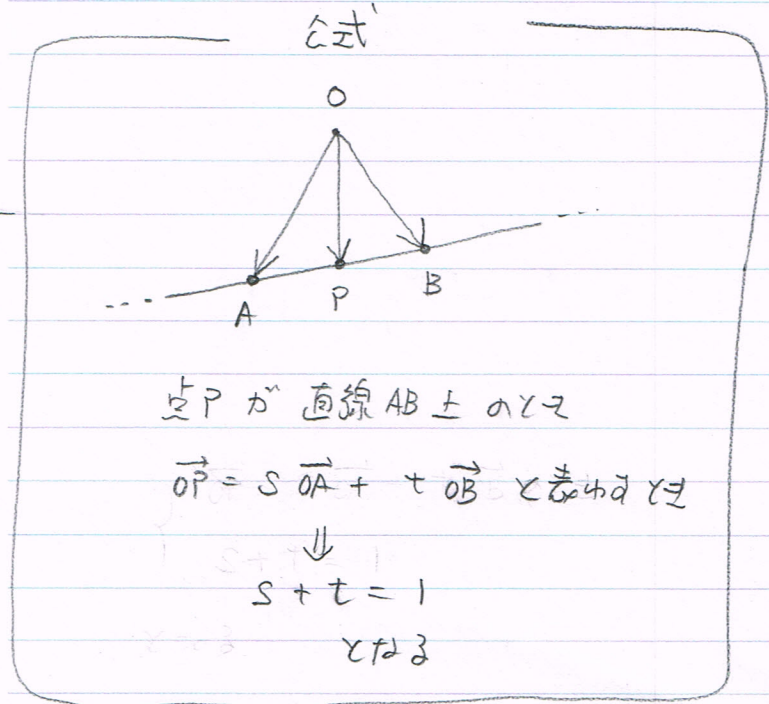 公式
O
A P B
点Pが 直線AB上 のとき
OP→ = s OA→ + t OB→ と表わすとき
⇓
s + t = 1
となる